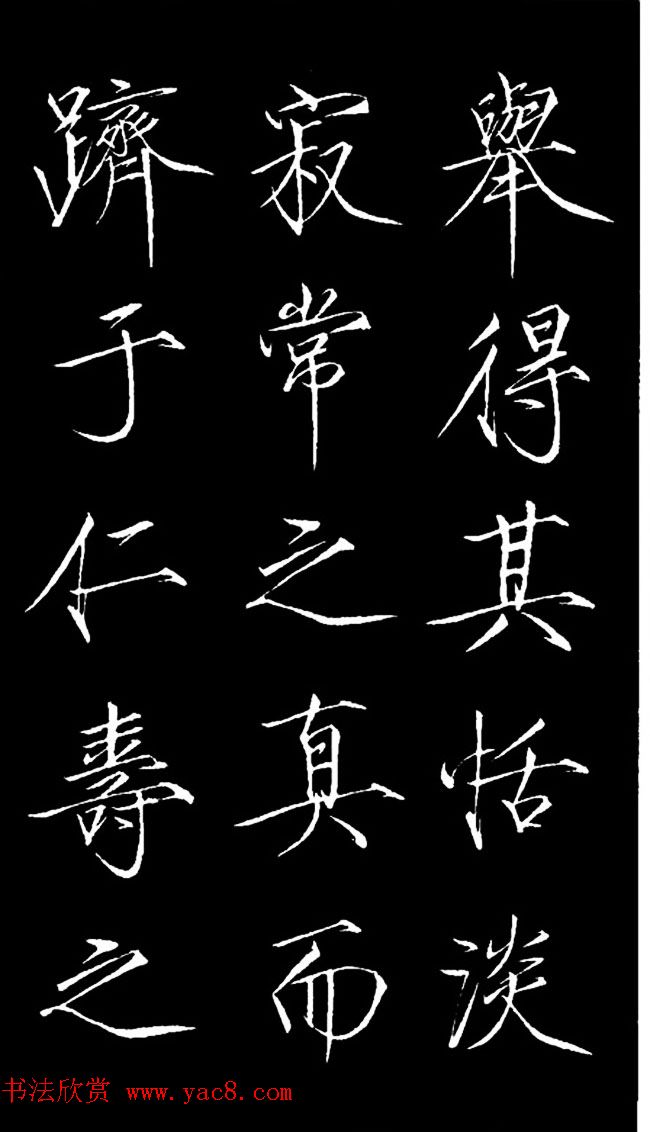 舉得其恬淡
寂常之真而
躋于仁壽之
书法欣赏 www.yac8.com